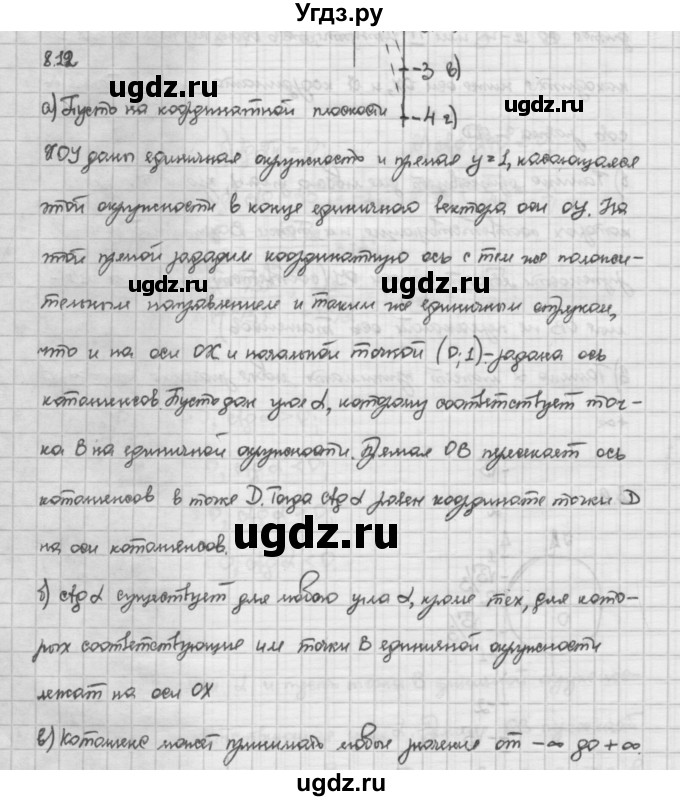 Угдз.ру
8.12
-3 в)
ugdz.ru
ugdz.ru
а) Пусть на координатной плоскости
-4 г)
XOY даны единичная окружность и прямая y=1, касающаяся
этой окружности в конце единичного вектора оси OY. На
этой прямой зададим координатную ось с тем же положи-
ugdz.ru
ugdz.ru
тельным направлением и таким же единичным отрезком,
что и на оси OX и начальной точкой (0;1)-задана ось
котангенсов. Пусть дан угол α, которому соответствует точ-
ка B на единичной окружности. Прямая OB пересекает ось
котангенсов в точке D. Тогда ctg α равен координате точки D
ugdz.ru
на оси котангенсов.
б) ctg α существует для любого угла α, кроме тех, для кото-
рых соответствующие им точки B единичной окружности
лежат на оси OX
в) Котангенс может принимать любые значение от -∞ до +∞.
ugdz.ru